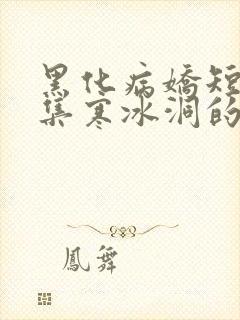 黑化病嬌短
集寒冰洞的
鳳舞